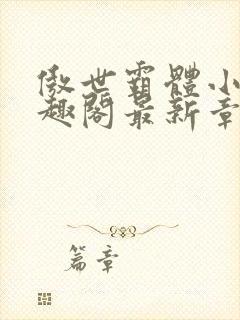 傲世霸體小
趣閣最新章
篇章